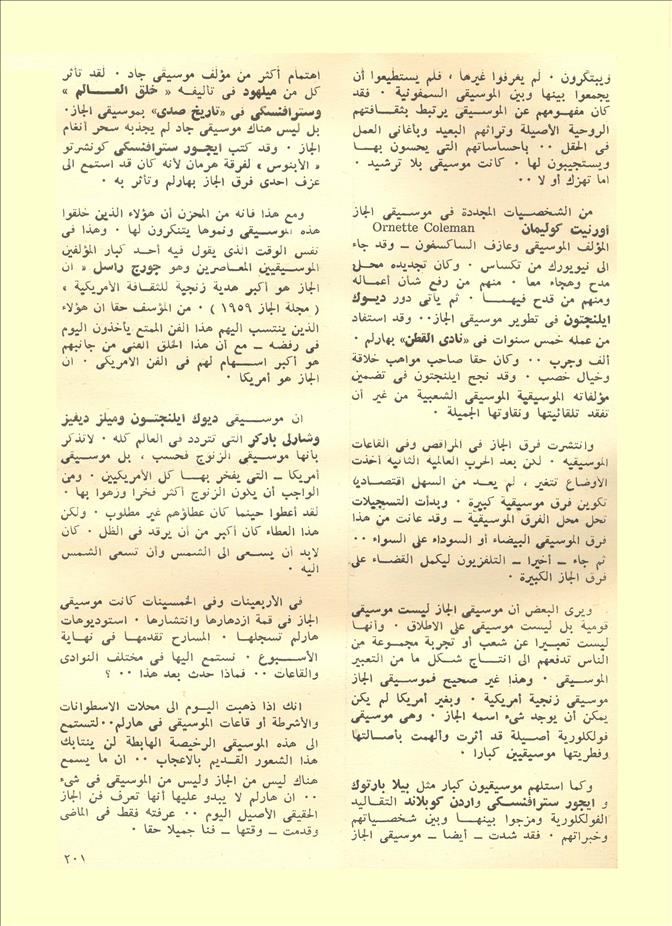 ويبتكرون ٠ لم يعرفوا غيرها ، فلم يستطيعوا أن
يجمعوا بينها وبين الموسيقى السمفونية ٠ فقد
كان مفهومهم عن الموسيقى يرتبط بثقافتهم
الروحية الأصيلة وتراثهم البعيد وبأغانى العمل
فى الحقل ٠٠ بأحساساتهم التى يحسون بها
ويستجيبون لها ٠ كانت موسيقى بلا ترشيد ٠
اما تهزك أو لا ٠٠
من الشخصيات المجددة فى موسيقى الجاز
أورنيت كوليمان Ornette Coleman
المؤلف الموسيقى وعازف الساكسفون ــ وقد جاء
الى نيويورك من تكساس ٠ وكان تجديده محل
مدح وهجاء معا ٠ منهم من رفع شأن أعماله
ومنهم من قدح فيها ٠ ثم يأتى دور ديوك
ايلنجتون فى تطوير موسيقى الجاز٠٠ وقد استفاد
من عمله خمس سنوات فى «نادى القطن» بهارلم ٠
ألف وجرب ٠٠ وكان حقا صاحب مواهب خلاقة
وخيال خصب ٠ وقد نجح ايلنجتون فى تضمين
مؤلفاته الموسيقية الموسيقى الشعبية من غير أن
تفقد تلقائيتها ونقاوتها الجميلة ٠
وانتشرت فرق الجاز فى المراقص وفى القاعات
الموسيقيه ٠ لكن بعد الحرب العالمية الثانية أخذت
الأوضاع تتغير ، لم يعد من السهل اقتصاديا
تكوين فرق موسيقية كبيرة ٠ وبدأت التسجيلات
تحل محل الفرق الموسيقية ــ وقد عانت من هذا
فرق الموسيقى البيضاء أو السوداء على السواء ٠٠
ثم جاء ــ أخيرا ــ التلفزيون ليكمل القضاء على
فرق الجاز الكبيرة ٠
ويرى البعض أن موسيقى الجاز ليست موسيقى
قومية بل ليست موسيقى على الاطلاق ٠ وأنها
ليست تعبيرا عن شعب أو تجربة مجموعة من
الناس تدفعهم الى انتاج شكل ما من التعبير
الموسيقى ٠ وهذا غير صحيح فموسيقى الجاز
موسيقى زنجية أمريكية ٠ وبغير أمريكا لم يكن
يمكن أن يوجد شىء اسمه الجاز ٠ وهى موسيقى
فولكلورية أصيلة قد أثرت وألهمت بأصالتها
وفطريتها موسيقيين كبارا ٠
وكما استلهم موسيقيون كبار مثل بيلا بارتوك
و ايجور سترافنسكى واردن كوبلاند التقاليد
الفولكلورية ومزجوا بينها وبين شخصياتهم
وخبراتهم ٠ فقد شدت ــ أيضا ــ موسيقى الجاز
اهتمام أكثر من مؤلف موسيقى جاد ٠ لقد تأثر
كل من ميلهود فى تأليفه « خلق العالم »
وسترافنسكى فى «تاريخ صدى» بموسيقى الجاز٠
بل ليس هناك موسيقى جاد لم يجذبه سحر أنغام
الجاز ٠ وقد كتب ايجور سترافنسكى كونشرتو
« الأبنوس » لفرقة هرمان لأنه كان قد استمع الى
عزف احدى فرق الجاز بهارلم وتأثر به ٠
ومع هذا فانه من المحزن أن هؤلاء الذين خلقوا
هذه الموسيقى ونموها يتنكرون لها ٠ وهذا فى
نفس الوقت الذى يقول فيه أحد كبار المؤلفين
الموسيقيين المعاصرين وهو جورج راسل « ان
الجاز هو أكبر هدية زنجية للثقافة الأمريكية »
( مجلة الجاز ١٩٥٩ ) ٠ من المؤسف حقا ان هؤلاء
الذين ينتسب اليهم هذا الفن الممتع يأخذون اليوم
فى رفضه ــ مع أن هذا الخلق الفنى من جانبهم
هو أكبر اسهام لهم فى الفن الأمريكى ٠ ان
الجاز هو أمريكا ٠
ان موسيقى ديوك ايلنجتون وميلز ديفيز
وشارلى باركر التى تتردد فى العالم كله ٠ لاتذكر
بأنها موسيقى الزنوج فحسب ، بل موسيقى
أمريكا ــ التى يفخر بها كل الأمريكين ٠ ومن
الواجب أن يكون الزنوج أكثر فخرا وزهوا بها ٠
لقد أعطوا حينما كان عطاؤهم غير مطلوب ٠ ولكن
هذا العطاء كان أكبر من أن يرقد فى الظل ٠ كان
لابد أن يسعى الى الشمس وأن تسعى الشمس
اليه ٠
فى الأربعينات وفى الخمسينات كانت موسيقى
الجاز فى قمة ازدهارها وانتشارها ٠ استوديوهات
هارلم تسجلها ٠ المسارح تقدمها فى نهاية
الأسبوع ٠ نستمع اليها فى مختلف النوادى
والقاعات ٠٠ فماذا حدث بعد هذا ٠٠ ؟
انك اذا ذهبت اليوم الى محلات الاسطوانات
والأشرطة أو قاعات الموسيقى فى هارلم٠٠لتستمع
الى هذه الموسيقى الرخيصة الهابطة لن ينتابك
هذا الشعور القديم بالاعجاب ٠٠ ان ما يسمع
هناك ليس من الجاز وليس من الموسيقى فى شىء
٠٠ ان هارلم لا يبدو عليها أنها تعرف فن الجاز
الحقيقى الأصيل اليوم ٠٠ عرفته فقط فى الماضى
وقدمت ــ وقتها ــ فنا جميلا حقا ٠
٢٠١